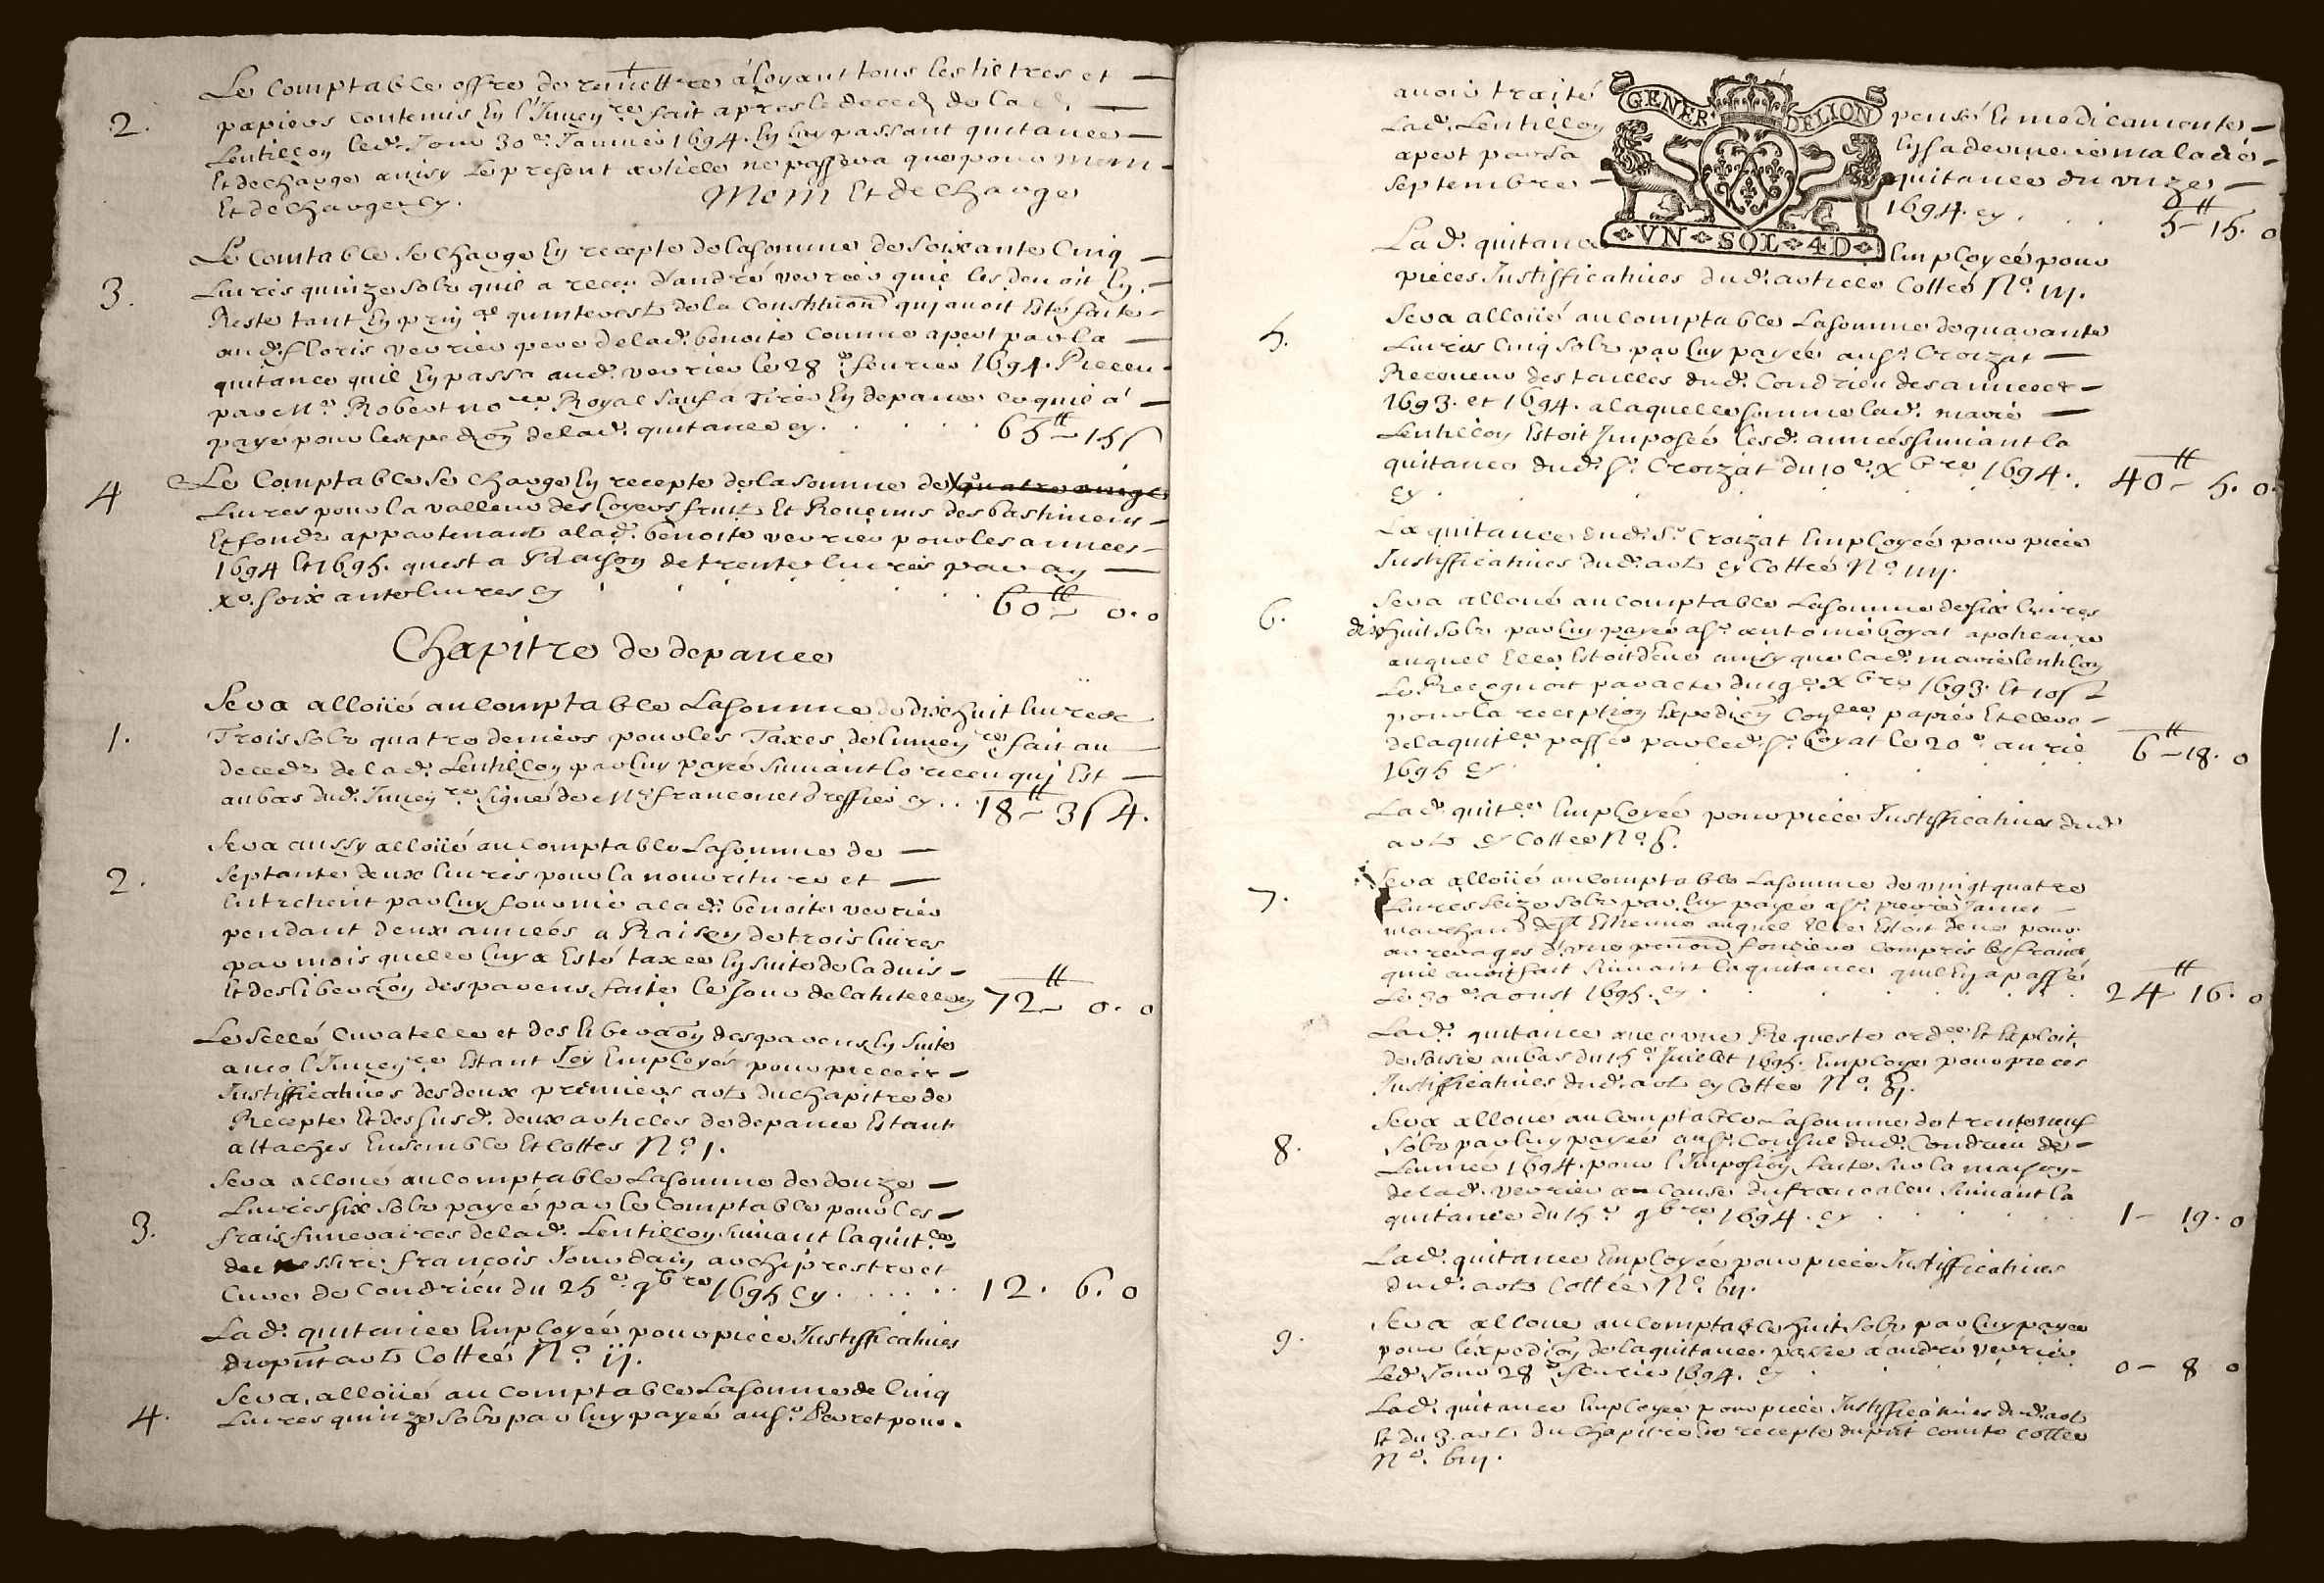 Le Comptable offre de remettre a loyant tous les tiltres et
2. papiers contenus En l'Inven.re fait apres le deced de la d.
Lentillon led. Jour 30.e Janvier 1694. En luy passant quitance
Et decharge ainsy Le present article ne passera que pour Mem
Et decharge cy. Mem Et decharge
Le Comtable se charge En recepte de la somme de soixante Cinq
3. Livres quinze sols quil a receu d'andré verrier quil les devoit En
Reste tant En prin.al quinterest de la Constituon qui avoit Esté faite
aud. floris verrier pere de lad. benoite comme apert par la
quitance quil En passa aud. verrier le 28.e fevrier 1694. Receu
par M.e Robert no.re Royal sauf a Tirer En depance ce quil a
payé pour lexpedion de lad. quitance cy. 65tt 15s
4 Le Comptable se charge En recepte de la somme de quatre vingt
Livres pour la valleur des loyers fruits Et Revenus des bastimens
Et fonds appartenants a lad. benoite verrier pour les annees
1694 Et 1695. quest a Raison de trente livres par an
X.e soixante livres cy 60tt 0. 0
Chapitre de depance
Sera alloüé au Comptable La somme de dix huit livres
1. Trois sols quatre deniers pour les Taxes de linven.re fait au
deceds de lad. Lentillon par luy payé suivant le receu quj Est
au bas dud. Inven.re signé de M.e franconet greffier cy. 18tt 3s 4.
Sera aussy alloüé au Comptable La somme de
2. Septante deux livres pour la nourriture et
Entretient par luy fournie a lad. benoite verrier
pendant deux années a Raison de trois livres
par mois quelle luy a Esté taxee En suite de laduis
Et desliberaon des parens faite le Jour de la tutelle cy 72tt 0. 0
Le sellé Curatelle et desliberaon des parens En suite
avec l'Inven.re Estant Icy Employés pour pieces
Justifficatives des deux premiers arts du chapitre de
Recepte Et des susd. deux articles de depance Estant
attachés Ensemble Et Cottes N.o 1.
Sera alloué au Comptable La somme de douze
3. Livres six sols payée par le Comptable pour les
frais funeraires de lad. Lentillon suivant la quit.ce
de messire françois Jourdain archiprestre et
Curé de Condrieu du 25.e 9bre 1695 cy 12. 6. 0
Lad. quitance Employée pour piece Justifficative
du pnt art. Cottée N.o ij.
Sera alloüé au Comptable La somme de Cinq
4. Livres quinze sols par luy payée au s.r Perret pour
avoir traité
GENER. DE LION
VN SOL 4D
pensé Et medicamenté
Lad. Lentillon En sa derniere maladie
apert par sa quitance du unze
Septembre 1694. cy 5tt 15. 0
Lad. quitance Employée pour
pieces Justifficatives dud. article Cottée N.o iij.
Sera alloüé au Comptable La somme de quarante
5. Livres Cinq sols par luy payée au s.r Croizat
Receveur des tailles dud. Condrieu des annees
1693. et 1694. a laquelle somme lad. marie
Lentillon Estoit Imposée lesd. années suivant la
quitance dud. s.r Croizat du 10.e Xbre 1694.
cy 40tt 5. 0.
La quitance dud. S.r Croizat Employée pour piece
Justifficatives dud. art. cy Cottée N.o iiij.
Sera alloué au Comptable La somme de six livres
6. dix huit sols par luy payée a s.r antoine boyat apoticaire
auquel Elle Estoit deue ainsy que lad. marie lentillon
Le Recognoit par acte du 19.e Xbre 1693. Et 10s
pour la reception Expedion papier Et
de la quit.ce passée par led. s.r boyat le 20.e avril
1695 cy 6tt 18. 0
Lad. quit.ce Employée pour piece Justifficative dud.
art. cy Cottée N.o 5.
Sera alloüé au Comptable La somme de vingt quatre
7. Livres seize sols par luy payée a s.r pierre Jamet
marchand de st Etienne auquel Elle Estoit deue pour
arrerages d'une pension fonciere compris les fraix
quil avoit fait suivant la quitance quil En a passé
Le 30.e aoust 1695. cy 24tt 16. 0
Lad. quitance avec une Requeste ord.ce Et Exploit
de saisie au bas du 15.e Juillet 1695. Employé pour pieces
Justifficatives dud. art. cy Cottée N.o 6j.
Sera alloué au Comptable La somme de trente neuf
8. Sols par luy payée au s.r Consul dud. Condrieu de
Lannée 1694. pour l'Imposion faite sur la maison
de lad. verrier a cause du franc aleu suivant la
quitance du 15.e 9bre 1694. cy 1 19. 0
Lad. quitance Employée pour piece Justifficative
dud. art. Cottée N.o 6ij.
Sera alloué au Comptable huit sols par luy payée
9. pour l'Expedion de la quitance passée a andré verrier
Led. Jour 28.e fevrier 1694. cy 0 8 0
Lad. quitance Employée pour piece Justifficative dud. art.
Et du 3. art. du Chapitre de recepte du pnt Comte Cottée
N.o 6iij.